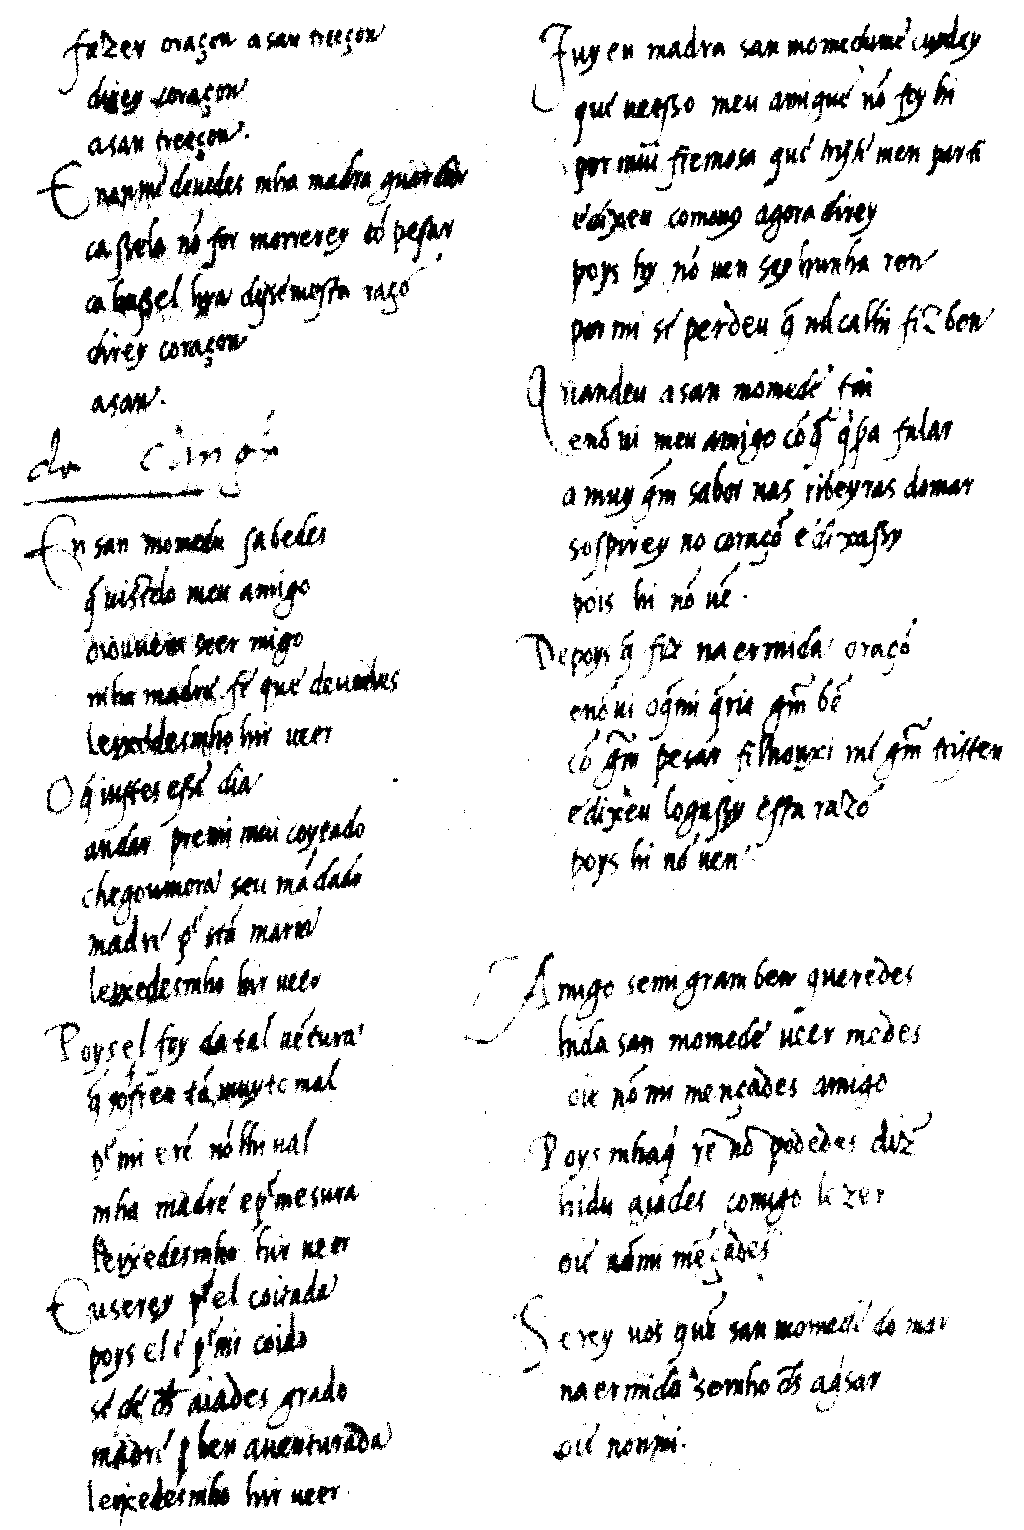 fazer oraçon a san treeçon
direy coraçon
a san treeçon.
E nanme deuedes mha madra guardar
ca sselo nō for morrerey cō pesar
ca hussel hya dissemesta raçō
direy coraçon
a san.
En san momedu sabedes
q̄ uistelo meu amigo
oiouuera seer migo
mha madre fe que deuedes
leixedesmho hir ueer
O q̄ uistes esse dia
andar premi mui coytado
chegoumora seu mādado
madre p̄ stā maria
leixedesmho hir ueer
Poys el foy da tal uētura
q̄ sofreu tā muyto mal
p̄ mi e rē nō lhi ual
mha madre e p̄ mesura
leixedesmho hir ueer
Eu serey p̄ el coitada
poys el e p̄ mi coido
se de d̄s aiades grado
madre ben auenturada
leixedesmho hir ueer.
Fuy eu madra san momedume cuydey
que ueesso meu amigue nō foy hi
por mui fremosa que triste men parti
e dixeu comouo agora direy
poys hy nō uen sey hunha ren
por mi se perdeu q̄ nūcalhi fiz ben
Quandeu a san momede fui
e nō ui meu amigo cō q̄ q̄sa falar
a muy gm̄ sabor nas ribeyras domar
sospirey no coraçō e dixassy
pois hi nō uē.
Depoys q̄ fiz na ermida oraçō
e nō ui o q̄mi q̄ria gm̄ bē
cō gm̄ pesar filhouxi me gm̄ tristen
e dixeu logassy esta razō
poys hi nō uen
Amigo semi gram ben queredes
hida san momede ueer medes
oie nō mi mençades amigo
Poys mhaq̄ rē nō podedes dizr̄
hidu aiades comigo lezer
oie nōmi mēçades
Serey uos que san momede do mar
na ermida semho d̄s aguisar
oie nonmi.